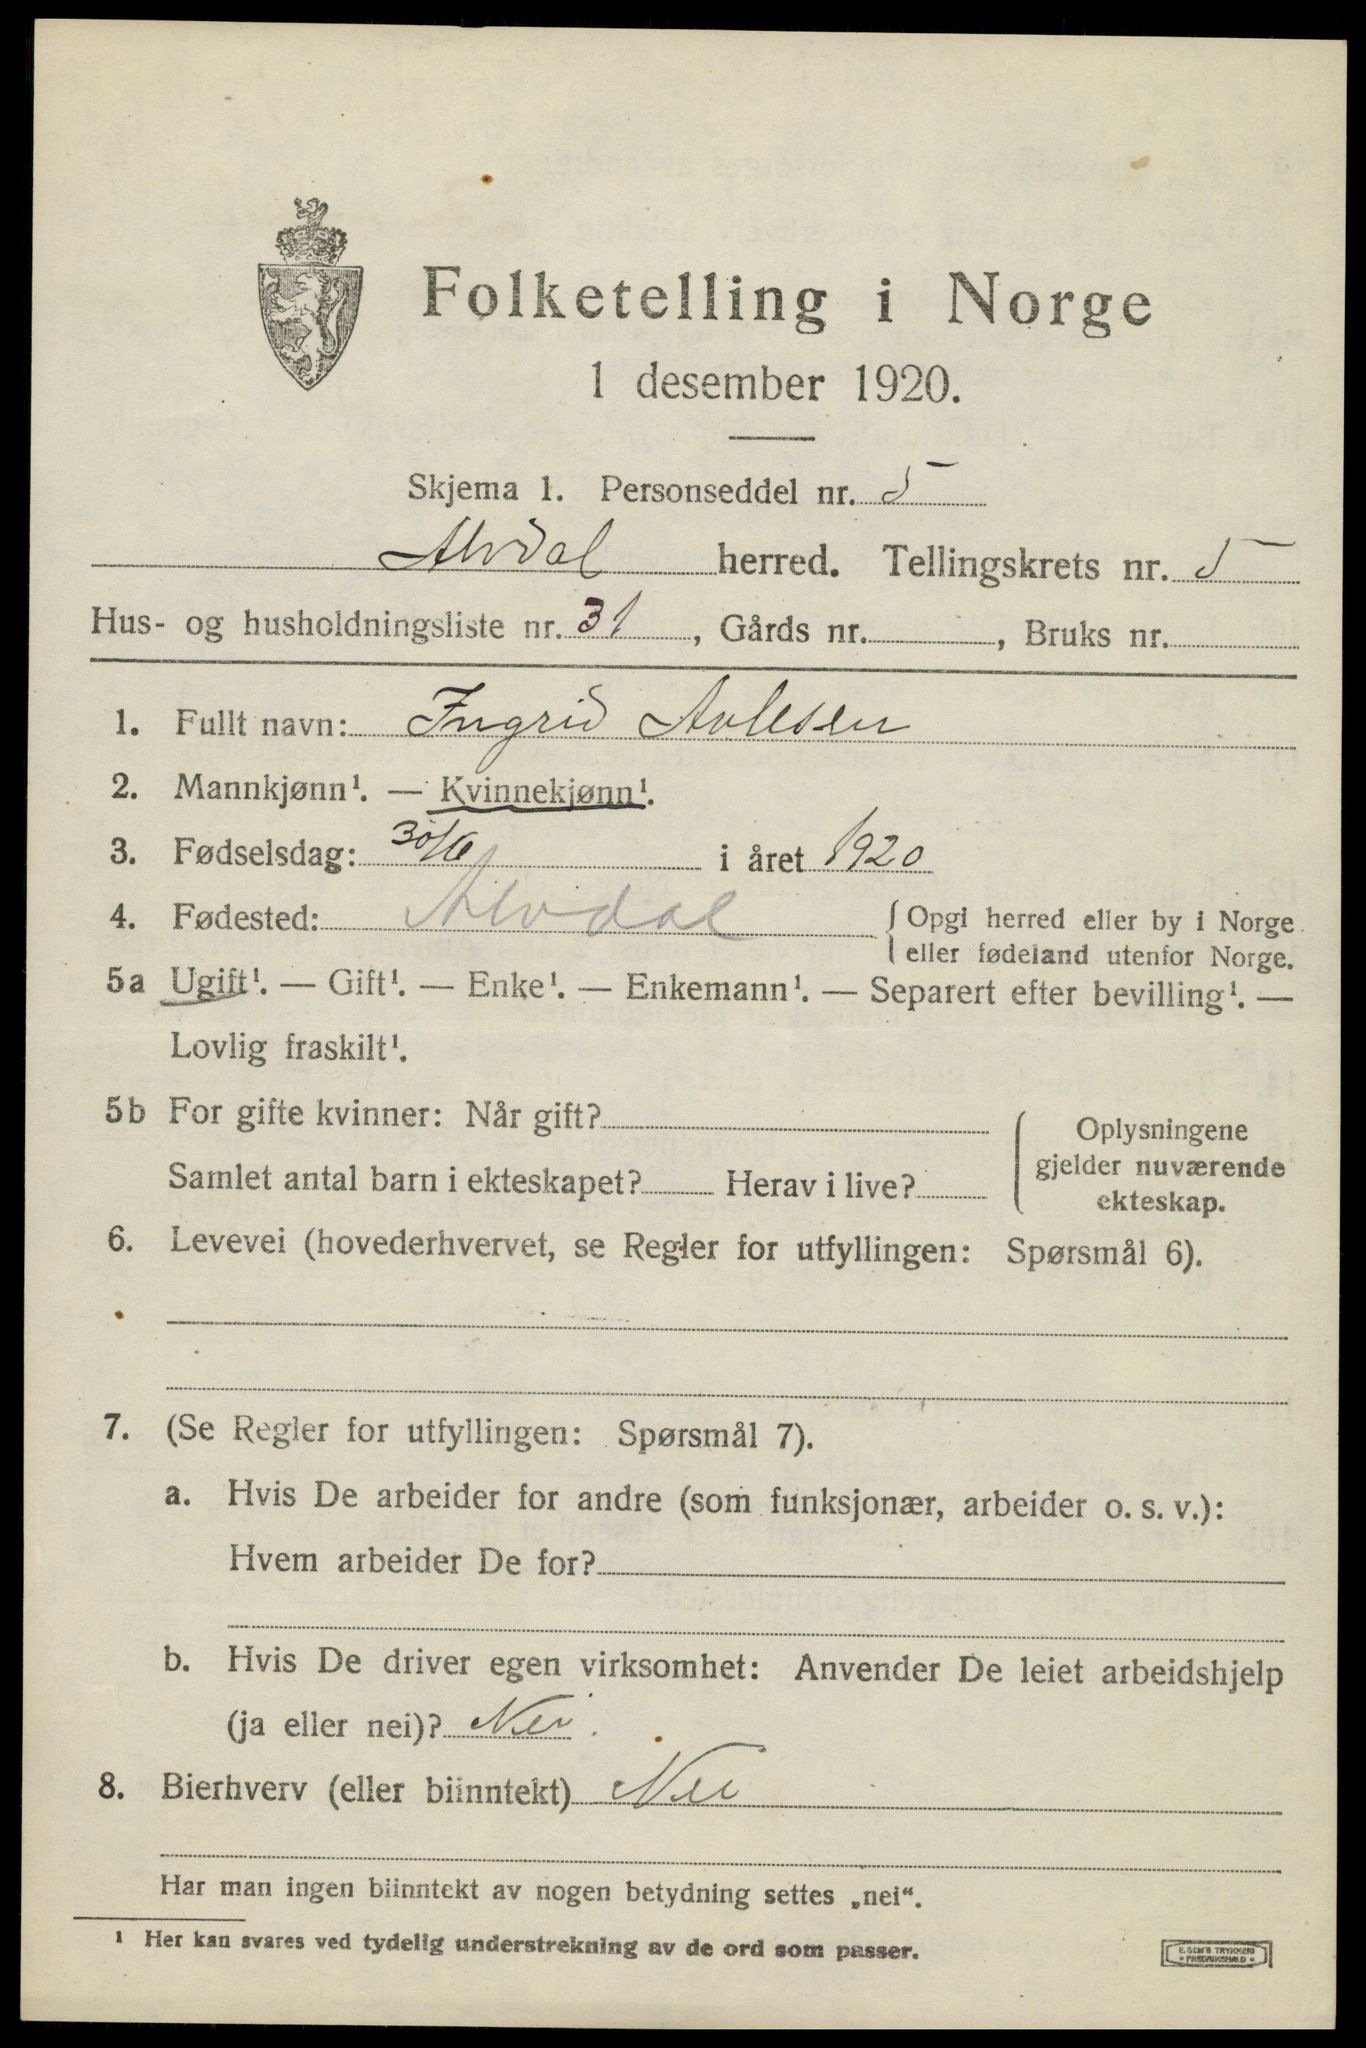 Folketelling i Norge
1 desember 1920.
Skjema 1. Personseddel nr. 5
Alvdal herred. Tellingskrets nr. 5
Hus- og husholdningsliste nr. 31, Gårds nr. , Bruks nr.
1. Fullt navn: Ingrid
2. Mannkjønn¹. — Kvinnekjønn¹.
3. Fødselsdag: 30/6 i året 1920
4. Fødested: Alvdal {Opgi herred eller by i Norge
eller fødeland utenfor Norge.
5a Ugift¹. — Gift¹. — Enke¹. — Enkemann¹. — Separert efter bevilling¹. —
Lovlig fraskilt¹.
5b For gifte kvinner: Når gift?
Samlet antal barn i ekteskapet? Herav i live?
Oplysningene
gjelder nuværende
ekteskap.
6. Levevei (hovederhvervet, se Regler for utfyllingen: Spørsmål 6).
7. (Se Regler for utfyllingen: Spørsmål 7).
a. Hvis De arbeider for andre (som funksjonær, arbeider o. s. v.):
Hvem arbeider De for?
b. Hvis De driver egen virksomhet: Anvender De leiet arbeidshjelp
(ja eller nei)? Nei.
8. Bierhverv (eller biinntekt) Nei
Har man ingen biinntekt av nogen betydning settes „nei“.
¹ Her kan svares ved tydelig understrekning av de ord som passer.
E. SEM'S TRYKKERI
FREDRIKSHALD